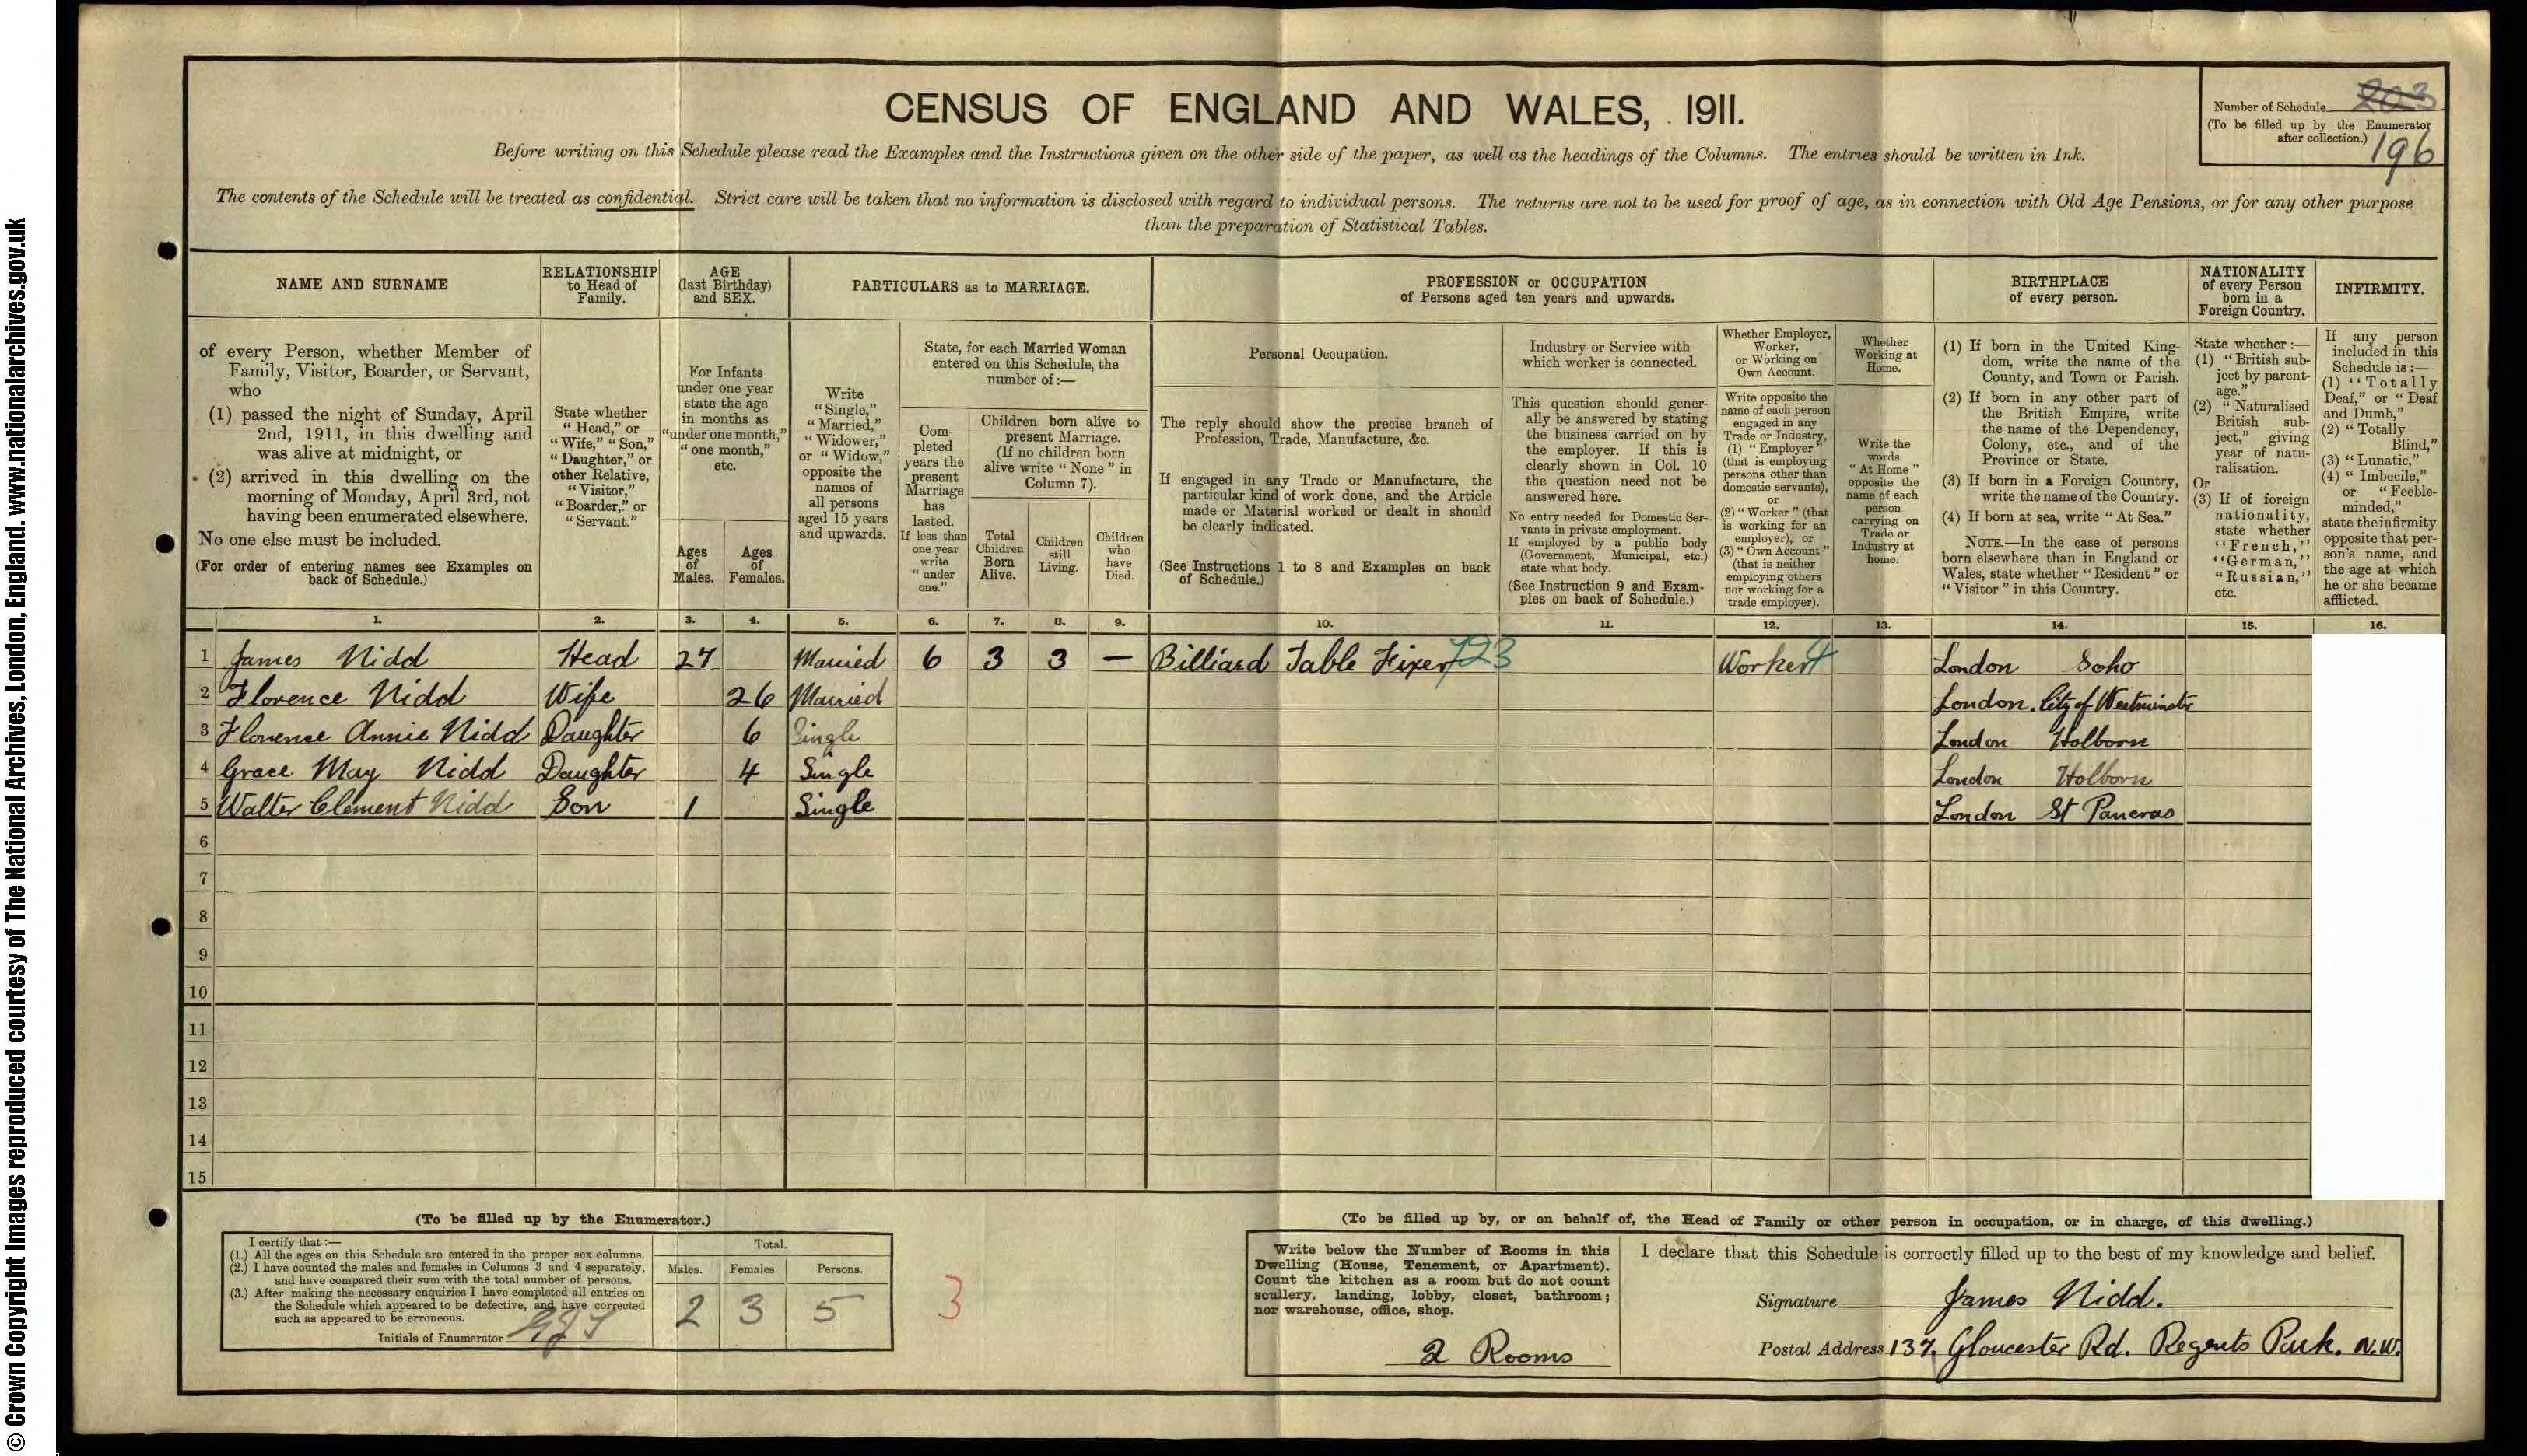 © Crown Copyright Images reproduced courtesy of The National Archives, London, England. www.nationalarchives.gov.uk
CENSUS OF ENGLAND AND WALES, 1911.
Number of Schedule 203
(To be filled up by the Enumerator
after collection.) 196
Before writing on this Schedule please read the Examples and the Instructions given on the other side of the paper, as well as the headings of the Columns. The entries should be written in Ink.
The contents of the Schedule will be treated as confidential. Strict care will be taken that no information is disclosed with regard to individual persons. The returns are not to be used for proof of age, as in connection with Old Age Pensions, or for any other purpose
than the preparation of Statistical Tables.
NAME AND SURNAME
of every Person, whether Member of
Family, Visitor, Boarder, or Servant,
who
(1) passed the night of Sunday, April
2nd, 1911, in this dwelling and
was alive at midnight, or
(2) arrived in this dwelling on the
morning of Monday, April 3rd, not
having been enumerated elsewhere.
No one else must be included.
(For order of entering names see Examples on
back of Schedule.)
RELATIONSHIP
to Head of
Family.
State whether
"Head," or
"Wife," "Son,"
"Daughter," or
other Relative,
"Visitor,"
"Boarder," or
"Servant."
AGE
(last Birthday)
and SEX.
For Infants
under one year
state the age
in months as
"under one month,"
"one month,"
etc.
Ages
of
Males.
Ages
of
Females.
PARTICULARS as to MARRIAGE.
Write
"Single,"
"Married,"
"Widower,"
or "Widow,"
opposite the
names of
all persons
aged 15 years
and upwards.
State, for each Married Woman
entered on this Schedule, the
number of:—
Com-
pleted
years the
present
Marriage
has
lasted.
If less than
one year
write
"under
one."
Children born alive to
present Marriage.
(If no children born
alive write "None" in
Column 7).
Total
Children
Born
Alive.
Children
still
Living.
Children
who
have
Died.
PROFESSION or OCCUPATION
of Persons aged ten years and upwards.
Personal Occupation.
The reply should show the precise branch of
Profession, Trade, Manufacture, &c.
If engaged in any Trade or Manufacture, the
particular kind of work done, and the Article
made or Material worked or dealt in should
be clearly indicated.
(See Instructions 1 to 8 and Examples on back
of Schedule.)
Industry or Service with
which worker is connected.
This question should gener-
ally be answered by stating
the business carried on by
the employer. If this is
clearly shown in Col. 10
the question need not be
answered here.
No entry needed for Domestic Ser-
vants in private employment.
If employed by a public body
(Government, Municipal, etc.)
state what body.
(See Instruction 9 and Exam-
ples on back of Schedule.)
Whether Employer,
Worker,
or Working on
Own Account.
Write opposite the
name of each person
engaged in any
Trade or Industry,
(1) "Employer"
(that is employing
persons other than
domestic servants),
or
(2) "Worker" (that
is working for an
employer), or
(3) "Own Account"
(that is neither
employing others
nor working for a
trade employer).
Whether
Working at
Home.
Write the
words
"At Home"
opposite the
name of each
person
carrying on
Trade or
Industry at
home.
BIRTHPLACE
of every person.
(1) If born in the United King-
dom, write the name of the
County, and Town or Parish.
(2) If born in any other part of
the British Empire, write
the name of the Dependency,
Colony, etc., and of the
Province or State.
(3) If born in a Foreign Country,
write the name of the Country.
(4) If born at sea, write "At Sea."
NOTE.—In the case of persons
born elsewhere than in England or
Wales, state whether "Resident" or
"Visitor" in this Country.
NATIONALITY
of every Person
born in a
Foreign Country.
State whether:—
(1) "British sub-
ject by parent-
age."
(2) "Naturalised
British sub-
ject," giving
year of natu-
ralisation.
Or
(3) If of foreign
nationality,
state whether
"French,"
"German,"
"Russian,"
etc.
INFIRMITY.
If any person
included in this
Schedule is:—
(1) "Totally
Deaf," or "Deaf
and Dumb,"
(2) "Totally
Blind,"
(3) "Lunatic,"
(4) "Imbecile,"
or "Feeble-
minded,"
state the infirmity
opposite that per-
son's name, and
the age at which
he or she became
afflicted.
1. 2. 3. 4. 5. 6. 7. 8. 9. 10. 11. 12. 13. 14. 15. 16.
1 James Nidd Head 27 Married 6 3 3 — Billiard Table Fixer 723 Worker 4 London Soho
2 Florence Nidd Wife 26 Married London. City of Westminster
3 Florence Annie Nidd Daughter 6 Single London Holborn
4 Grace May Nidd Daughter 4 Single London Holborn
5 Walter Clement Nidd Son 1 Single London St Pancras
6
7
8
9
10
11
12
13
14
15
(To be filled up by the Enumerator.)
I certify that:—
(1.) All the ages on this Schedule are entered in the proper sex columns.
(2.) I have counted the males and females in Columns 3 and 4 separately,
and have compared their sum with the total number of persons.
(3.) After making the necessary enquiries I have completed all entries on
the Schedule which appeared to be defective, and have corrected
such as appeared to be erroneous.
Initials of Enumerator
Total.
Males. Females. Persons.
2 3 5
3
(To be filled up by, or on behalf of, the Head of Family or other person in occupation, or in charge, of this dwelling.)
Write below the Number of Rooms in this
Dwelling (House, Tenement, or Apartment).
Count the kitchen as a room but do not count
scullery, landing, lobby, closet, bathroom;
nor warehouse, office, shop.
2 Rooms
I declare that this Schedule is correctly filled up to the best of my knowledge and belief.
Signature James Nidd.
Postal Address 137, Gloucester Rd. Regents Park. N.W.